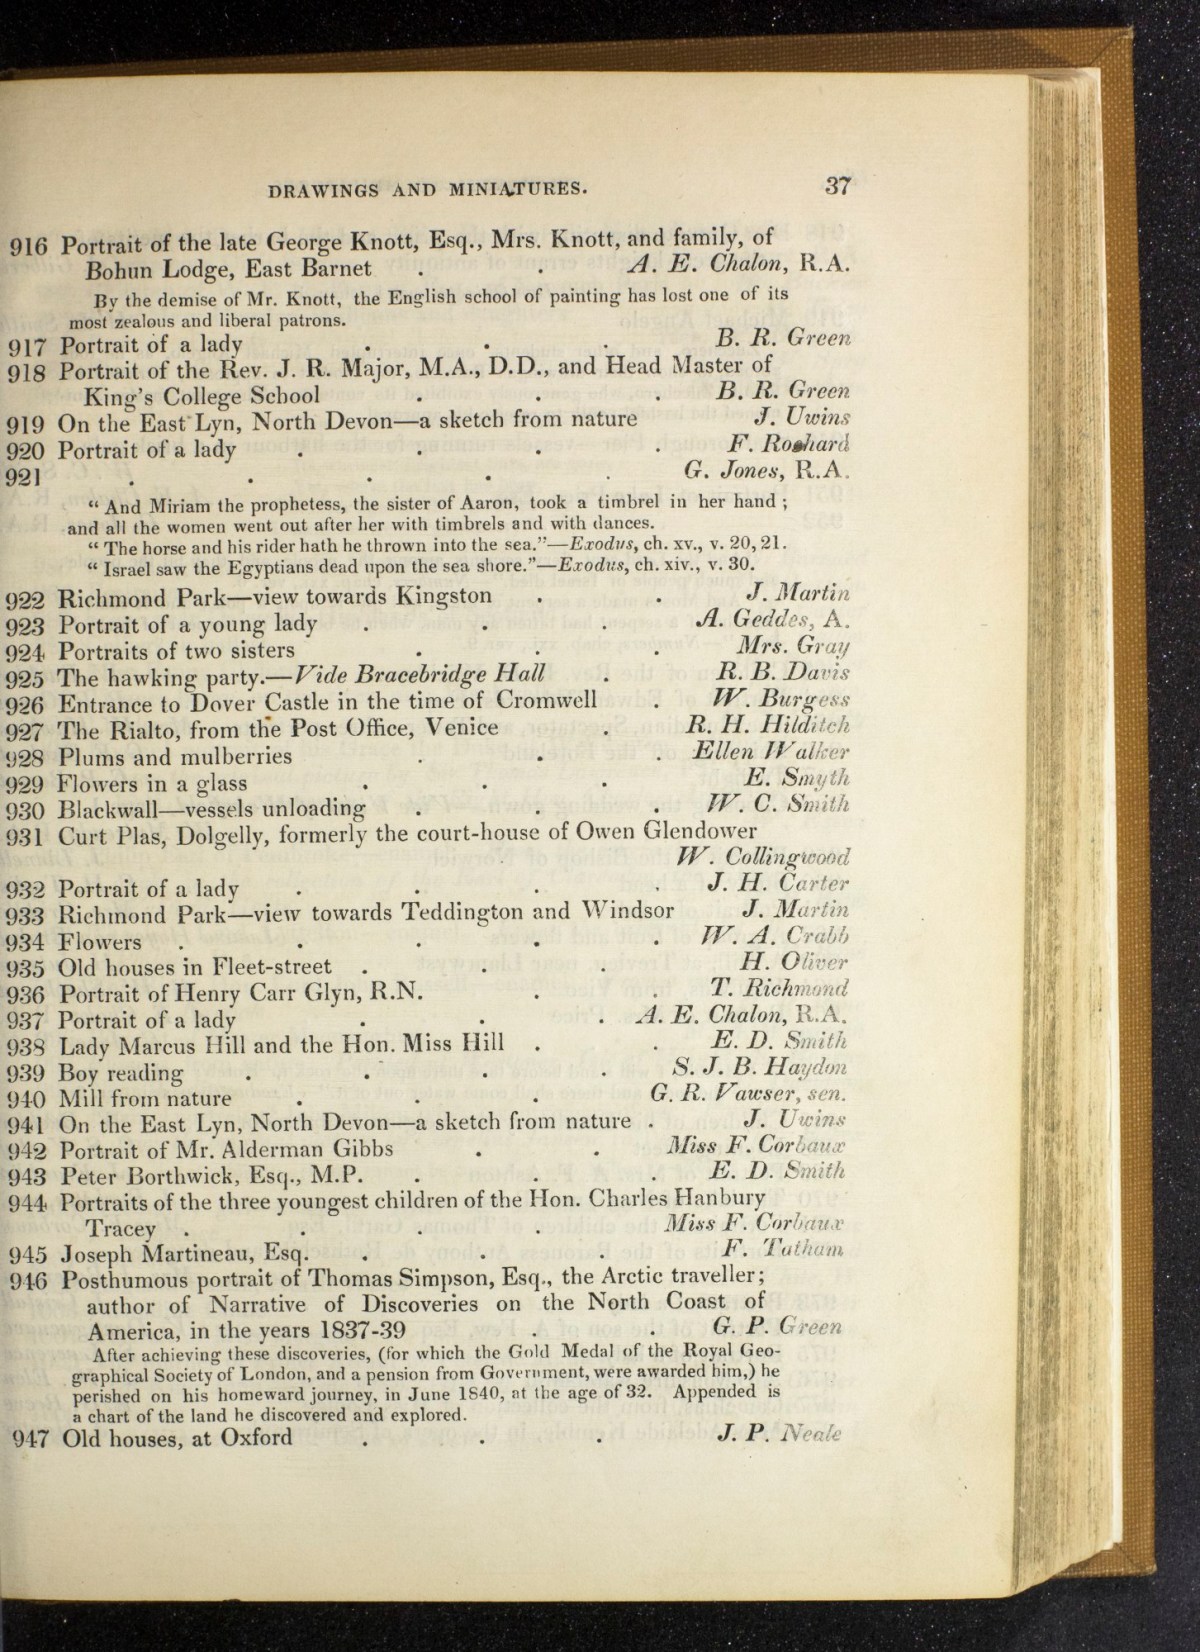 DRAWINGS AND MINIATURES. 37
916 Portrait of the late George Knott, Esq., Mrs. Knott, and family, of
Bohun Lodge, East Barnet . . A. E. Chalon, R.A.
By the demise of Mr. Knott, the English school of painting has lost one of its
most zealous and liberal patrons.
917 Portrait of a lady . . . B. R. Green
918 Portrait of the Rev. J. R. Major, M.A., D.D., and Head Master of
King's College School . . . B. R. Green
919 On the East Lyn, North Devon—a sketch from nature J. Uwins
920 Portrait of a lady . . . . F.
921 . . . . . G. Jones, R.A.
“ And Miriam the prophetess, the sister of Aaron, took a timbrel in her hand ;
and all the women went out after her with timbrels and with dances.
“ The horse and his rider hath he thrown into the sea.”—Exodus, ch. xv., v. 20, 21.
“ Israel saw the Egyptians dead upon the sea shore.”—Exodus, ch. xiv., v. 30.
922 Richmond Park—view towards Kingston . . J. Martin
923 Portrait of a young lady . . . A. Geddes, A.
924 Portraits of two sisters . . . Mrs. Gray
925 The hawking party.—Vide Bracebridge Hall . R. B. Davis
926 Entrance to Dover Castle in the time of Cromwell . W. Burgess
927 The Rialto, from the Post Office, Venice . R. H. Hilditch
928 Plums and mulberries . . . Ellen Walker
929 Flowers in a glass . . . E. Smyth
930 Blackwall—vessels unloading . . . W. C. Smith
931 Curt Plas, Dolgelly, formerly the court-house of Owen Glendower
W. Collingwood
932 Portrait of a lady . . . . J. H. Carter
933 Richmond Park—view towards Teddington and Windsor J. Martin
934 Flowers . . . . . W. A. Crabb
935 Old houses in Fleet-street . . . H. Oliver
936 Portrait of Henry Carr Glyn, R.N. . . T. Richmond
937 Portrait of a lady . . . A. E. Chalon, R.A.
938 Lady Marcus Hill and the Hon. Miss Hill . . E. D. Smith
939 Boy reading . . . . S. J. B. Haydon
940 Mill from nature . . . G. R. Vawser, sen.
941 On the East Lyn, North Devon—a sketch from nature . J. Uwins
942 Portrait of Mr. Alderman Gibbs . . Miss F. Corbaux
943 Peter Borthwick, Esq., M.P. . . . E. D. Smith
944 Portraits of the three youngest children of the Hon. Charles Hanbury
Tracey . . . . Miss F. Corbaux
945 Joseph Martineau, Esq. . . . F. Tatham
946 Posthumous portrait of Thomas Simpson, Esq., the Arctic traveller;
author of Narrative of Discoveries on the North Coast of
America, in the years 1837-39 . . G. P. Green
After achieving these discoveries, (for which the Gold Medal of the Royal Geo-
graphical Society of London, and a pension from Government, were awarded him,) he
perished on his homeward journey, in June 1840, at the age of 32. Appended is
a chart of the land he discovered and explored.
947 Old houses, at Oxford . . . J. P. Neale